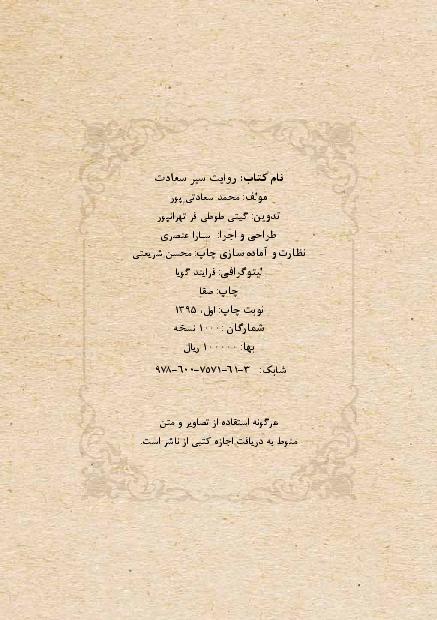 نام کتاب: روایت سیر سعادت
مولف: محمد سعادتی پور
تدوین: گیتی طوطی فر تهرانپور
طراحی و اجرا: سارا عنصری
نظارت و آماده سازی چاپ: محسن شریعتی
لیتوگرافی: فرایند گویا
چاپ: صفا
نوبت چاپ: اول، ۱۳۹۵
شمارگان: ۱۰۰۰ نسخه
بها: ۱۰۰۰۰۰ ریال
شابک: ۳-۶۱-۷۵۷۱-۶۰۰-۹۷۸
هرگونه استفاده از تصاویر و متن
منوط به دریافت اجازه کتبی از ناشر است.